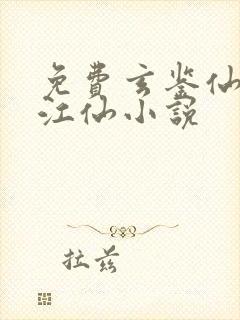 免費玄鉴仙
江仙小說
拉兹